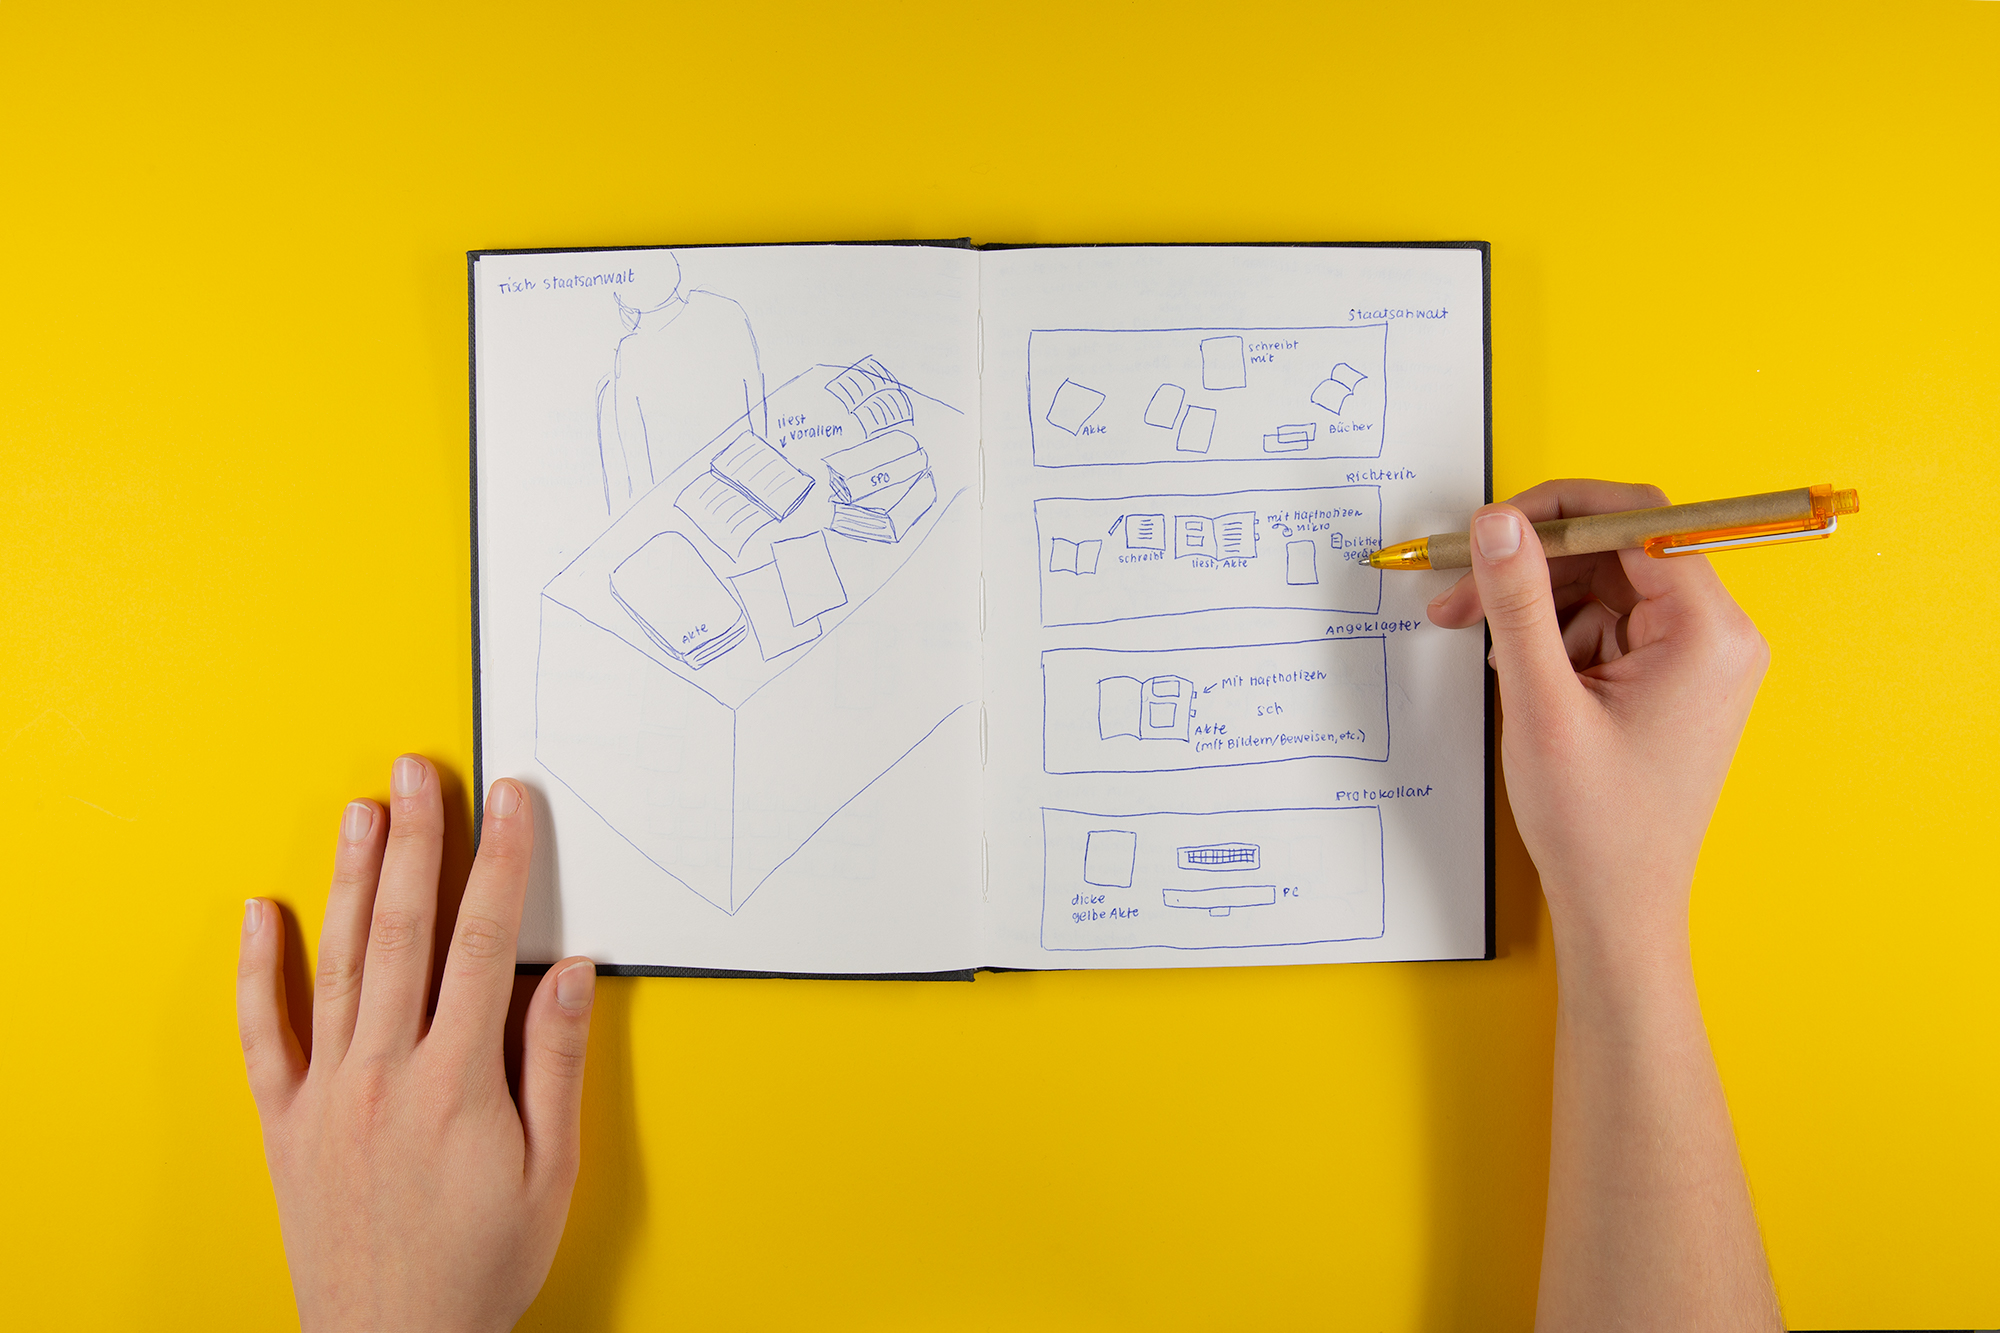 Tisch Staatsanwalt
liest
vorallem
SPO
Akte
Staatsanwalt
schreibt
mit
Akte
Bücher
Richterin
mit Haftnotizen
Mikro
Diktier
gerät
schreibt
liest, Akte
Angeklagter
Mit Haftnotizen
sch
Akte
(mit Bildern/Beweisen, etc.)
Protokollant
dicke
gelbe Akte
PC